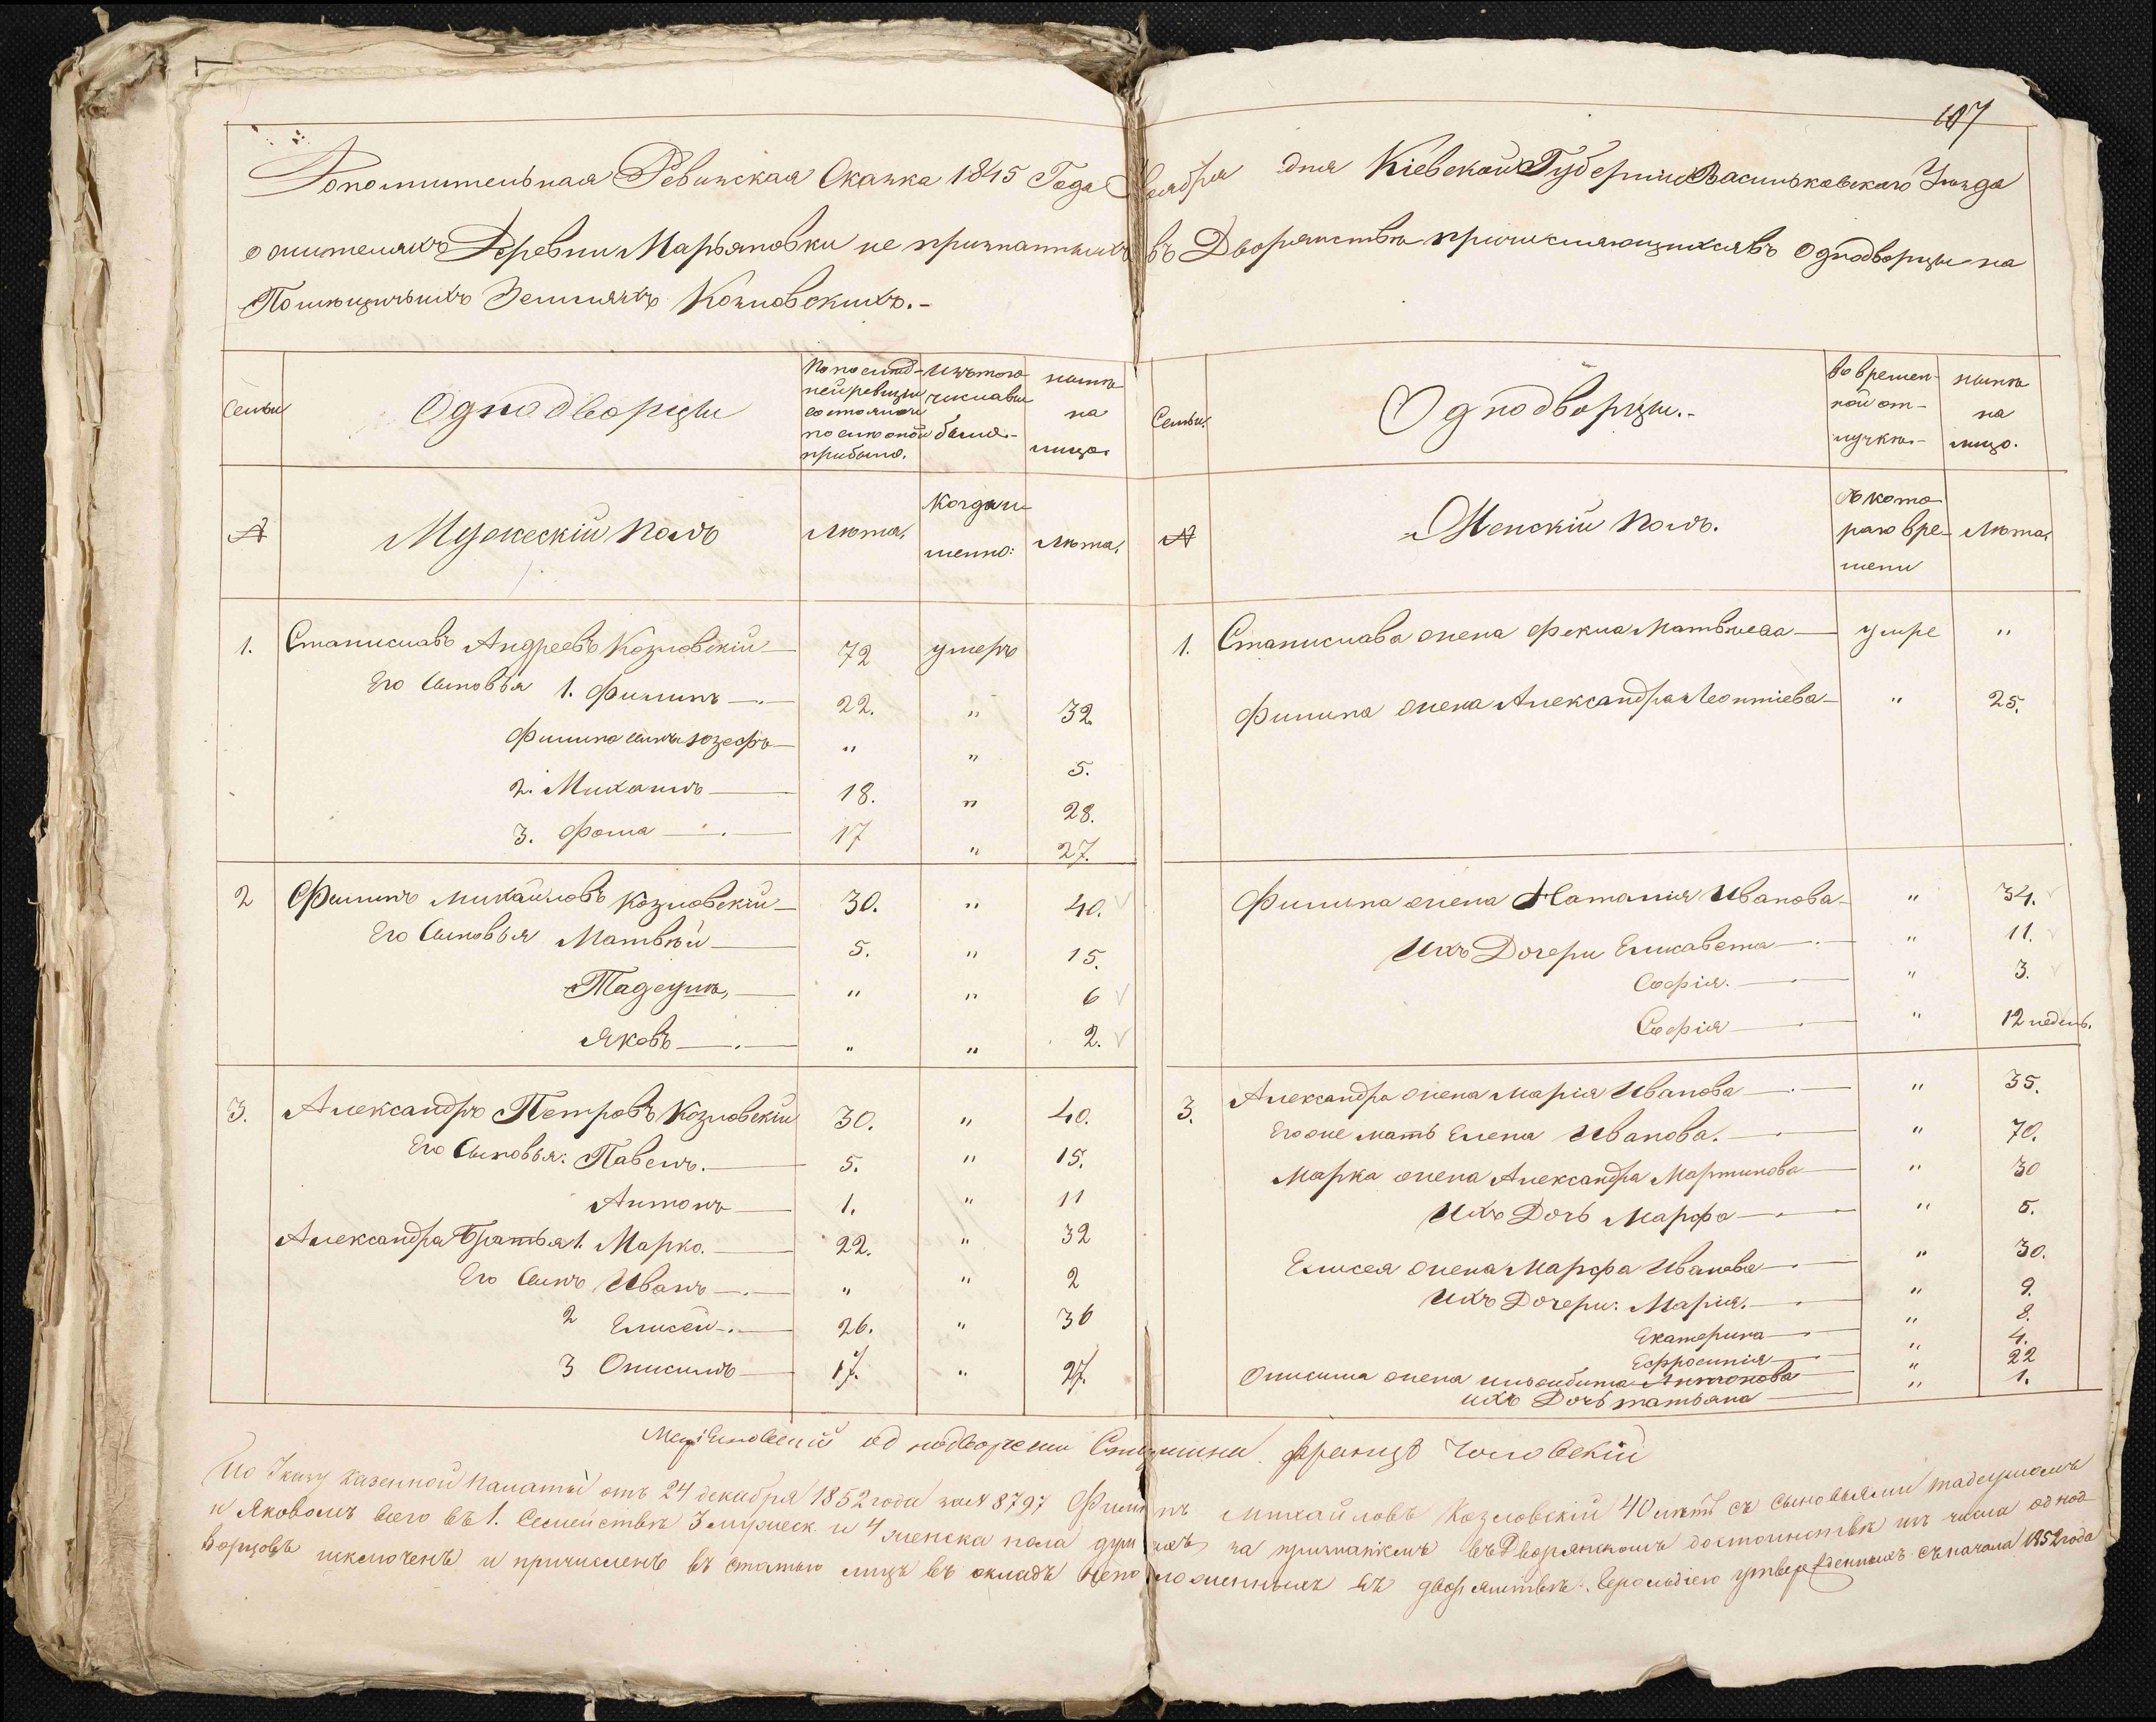 107
Дополнительная Ревизская Сказка 1845 Года Ноября дня Кіевской Губерніи Васильковскаго Уѣзда
о жителяхъ Деревни Марьяновки не признанныхъ въ Дворянствѣ причисляющихся въ Однодворцы на
Помѣщичьихъ Земляхъ Козловскихъ.-
Семьи
Однодворцы
По послѣд-
ней ревизіи
состояло и
послѣ оной
прибыло.
Изъ того
числа вы
было.-
нынѣ
на
лицо.
Семьи.
Однодворцы.-
во времен-
ной от-
лучкѣ.-
нынѣ
на
лицо.
№
Мужескій полъ
Лѣта.
Когда и
менно:
Лѣта.
№
Женскій полъ.
Съ кото
раго вре-
мени
Лѣта.
1. Станиславъ Андреевъ Козловскій 72 умеръ
Его Сыновья 1. Филипъ 22. " 32
Филипа сынъ Юзефъ " " 5.
2. Михаилъ 18. " 28.
3. Фома 17 " 27.
1. Станислава жена Фекла Матвѣева умре "
Филипа жена Александра Леонтіева " 25.
2 Филипъ Михайловъ Козловскій 30. " 40.
Его Сыновья Матвѣй 5. " 15.
Тадеушъ, " " 6
Яковъ " " 2.
Филипа жена Наталія Иванова " 34.
Ихъ Дочери Елисавета " 11.
Софія. " 3.
Софія " 12 недель.
3. Александръ Петровъ Козловскій 30. " 40.
Его Сыновья: Павелъ. 5. " 15.
Антонъ 1. " 11
Александра Братья 1. Марко. 22. " 32
Его Сынъ Иванъ " " 2
2 Елисей 26. " 36
3 Онисимъ 17. " 27.
3. Александра жена Марія Иванова " 35.
Его же мать Елена Иванова. " 70.
Марка жена Александра Мартинова " 30
Ихъ Дочь Марфа " 5.
Елисея жена Марфа Иванова " 30.
Ихъ Дочери: Марія. " 9.
Екатерина " 8.
Ефросинія " 4.
Онисима жена Антонова " 22
ихъ Дочь татьяна " 1.
Старшина Францъ
По Указу Казенной Палаты отъ 24 декабря 1852 года за № 8797 Филипъ Михайловъ Козловскій 40 лѣтъ съ сыновьями тадеушомъ
и Яковомъ всего въ 1. Семействѣ 3 мужеск. и 4 женска пола душ ихъ за признаніемъ въ Дворянскомъ достоинствѣ изъ числа однод-
ворцовъ исключенъ и причисленъ въ статью лицъ въ окладъ неположенныхъ въ дворянствѣ Герольдіею утвержденныхъ съ начала 1852 года